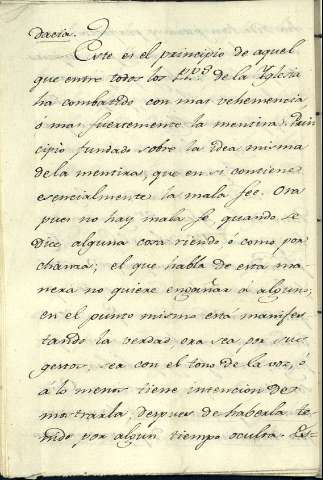 dacia.
Este es el principio de aquel
que entre todos los PP.s de la Yglesia
ha combatido con mas vehemencia
ó mas fuertemente la mentira. Prin
cipio fundado sobre la idea misma
de la mentira, que en si contiene
esencialmente la mala fee. Ora
pues no hay mala fé, quando se
dice alguna cosa riendo ó como por
chanza; el que habla de esta ma
nera no quiere engañar á alguno;
en el punto mismo está manifes
tando la verdad, ora sea por sus
gestos, sea con el tono de la voz, ó
á lo menos tiene intencion de
mostrarla, despues de haberla te
nido por algun tiempo oculta. Es=